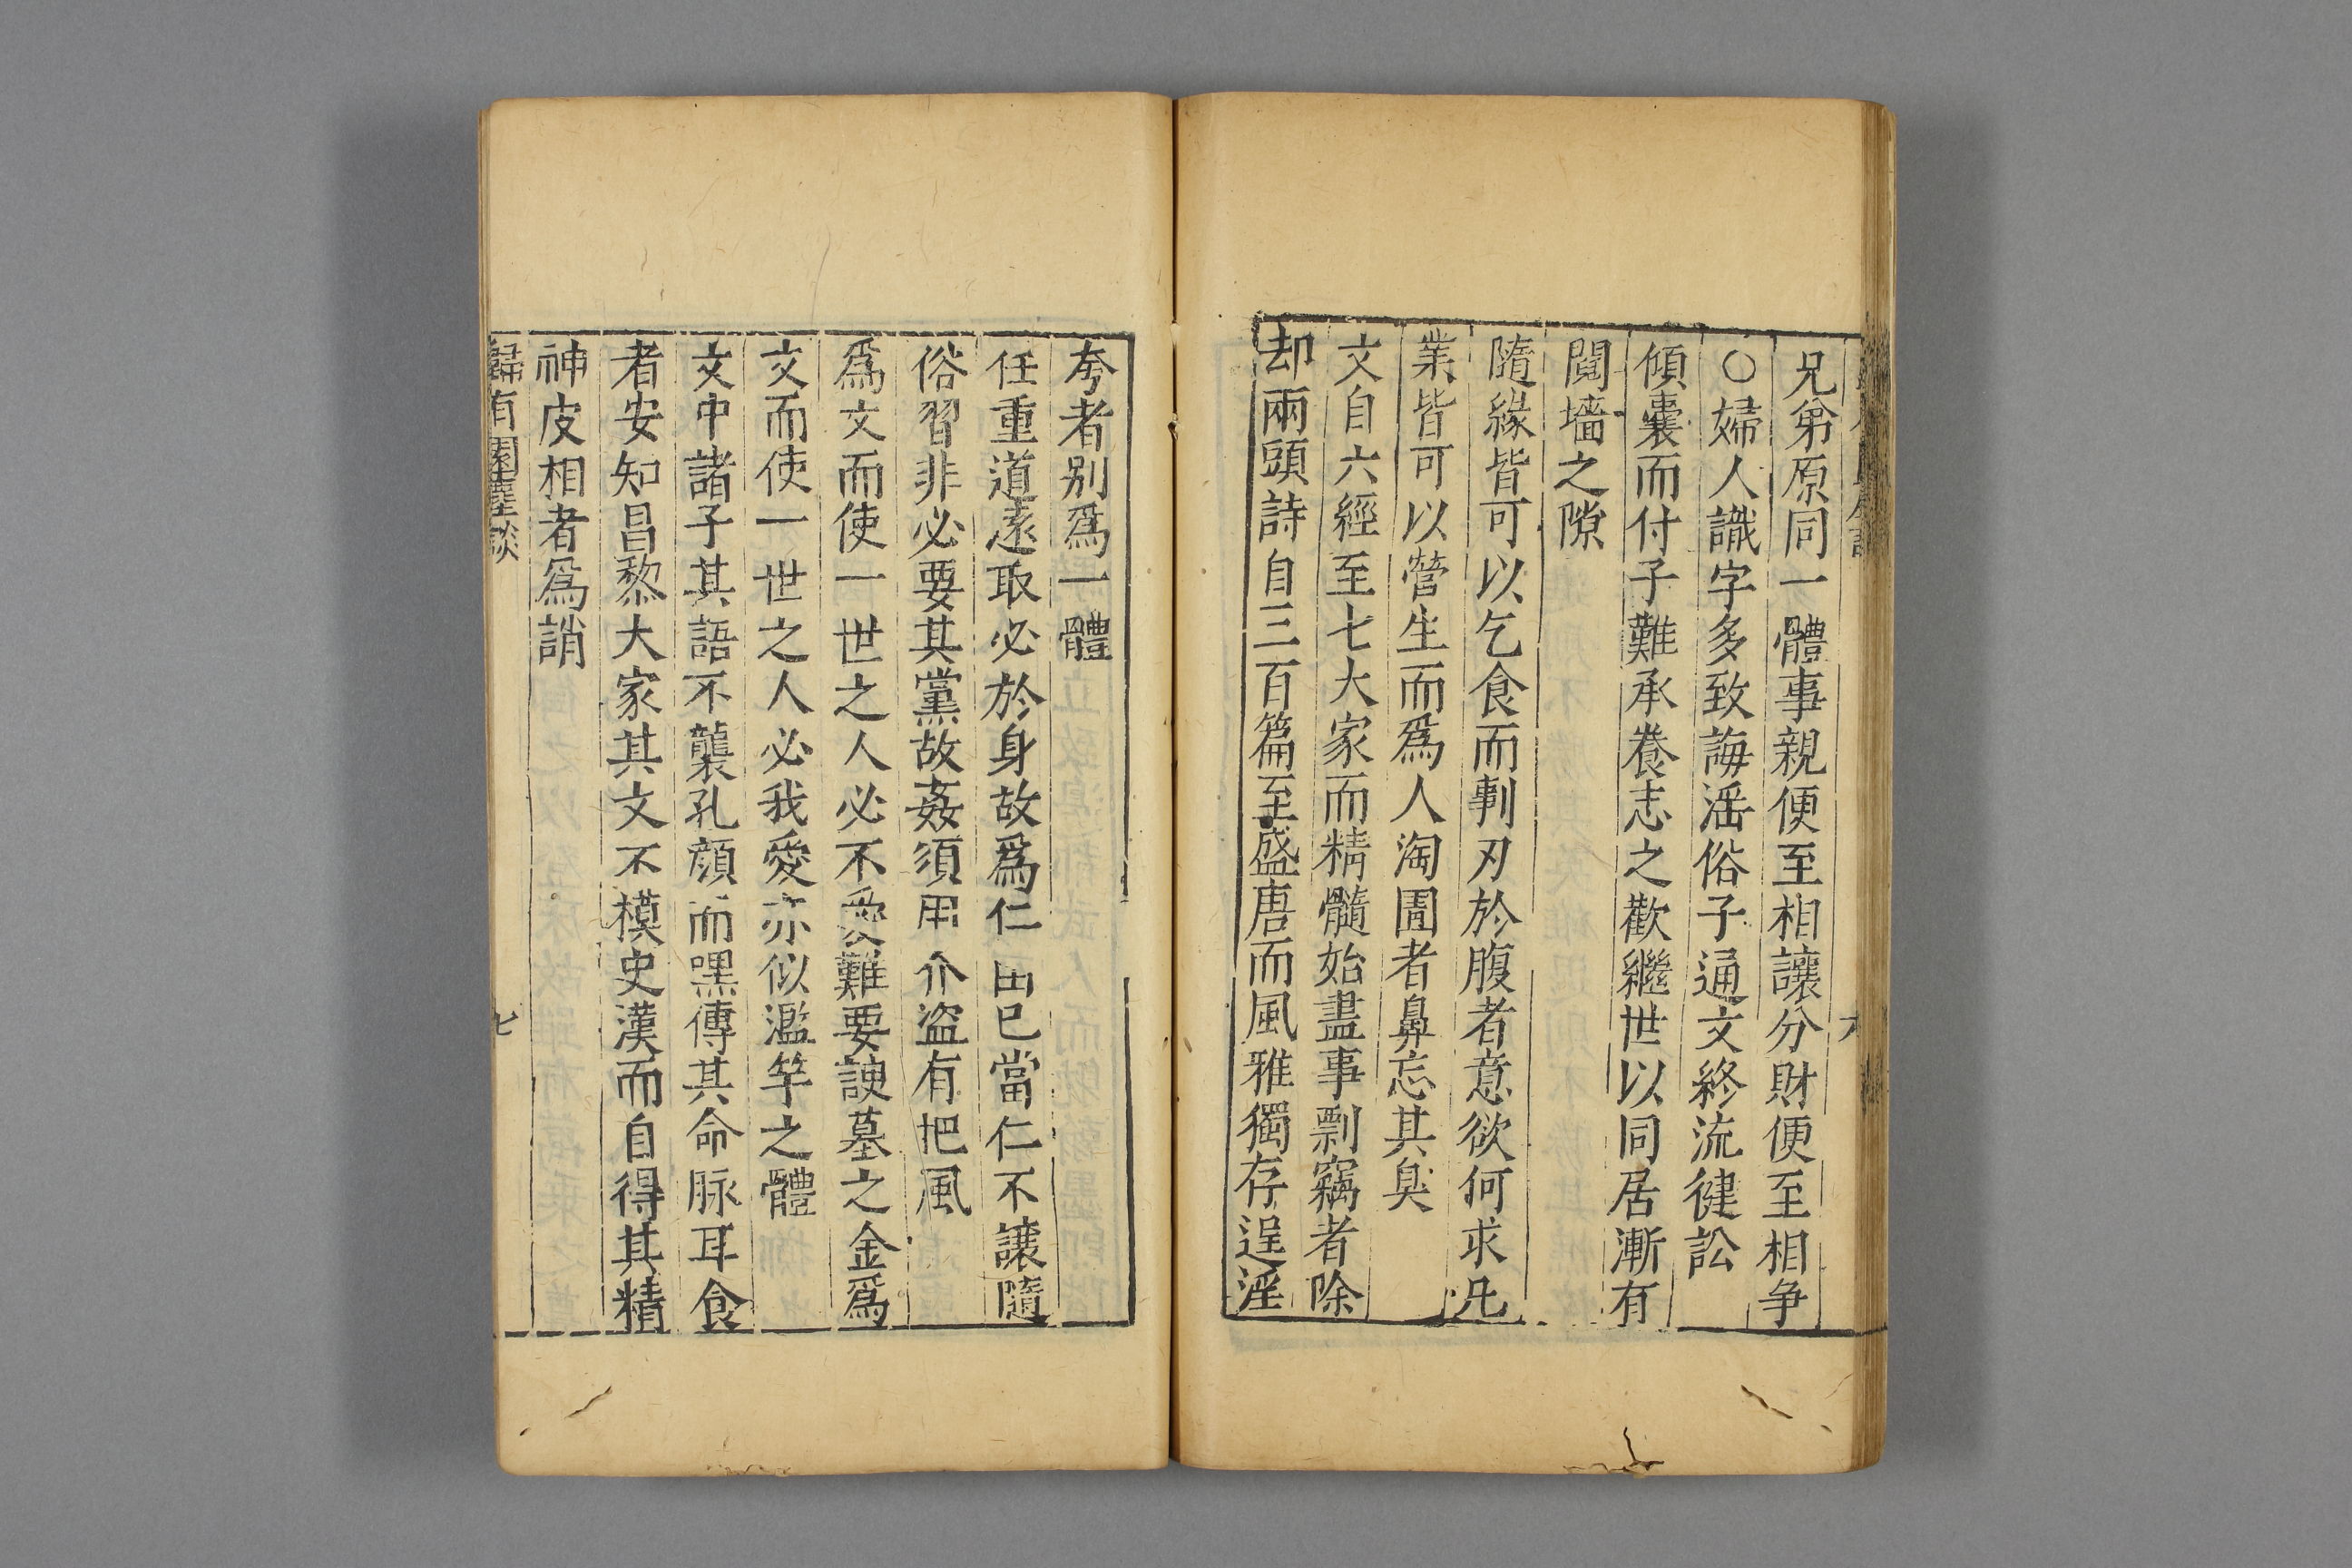 兄弟原同一體事親便至相讓分財便至相爭
○婦人識字多致誨淫俗子通文終流健訟
傾囊而付子難承養志之歡繼世以同居漸有
鬩墻之隙
隨緣皆可以乞食而剚刃於腹者意欲何求凡
業皆可以營生而爲人淘圊者鼻忘其臭
文自六經至七大家而精髓始盡事剽竊者除
却兩頭詩自三百篇至盛唐而風雅獨存逞淫
夸者别爲一體
任重道遠取必於身故爲仁由己當仁不讓隨
俗習非必要其黨故姦須用介盜有把風
爲文而使一世之人必不愛難要諛墓之金爲
文而使一世之人必我愛亦似濫竽之體
文中諸子其語不襲孔顔而嘿傳其命脉耳食
者安知昌黎大家其文不模史漢而自得其精
神皮相者爲誚
歸有園麈談
七